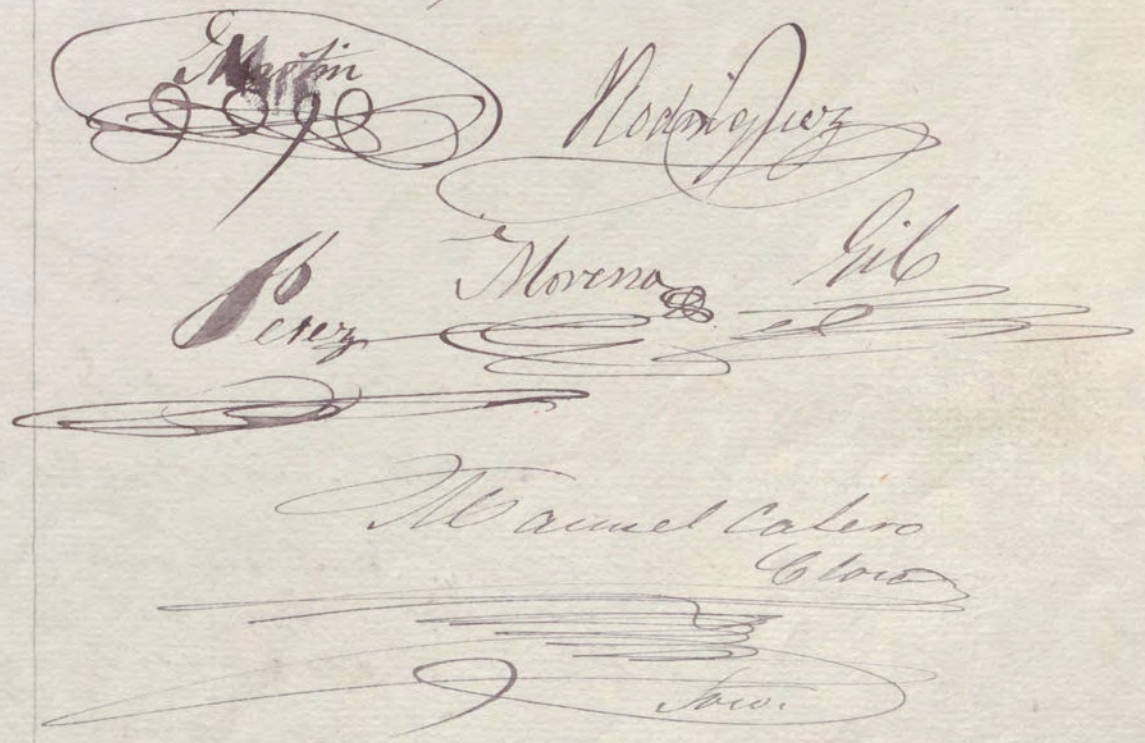 Martin
Rodriguez
Perez
Moreno
Gil
Manuel Calero
Claro